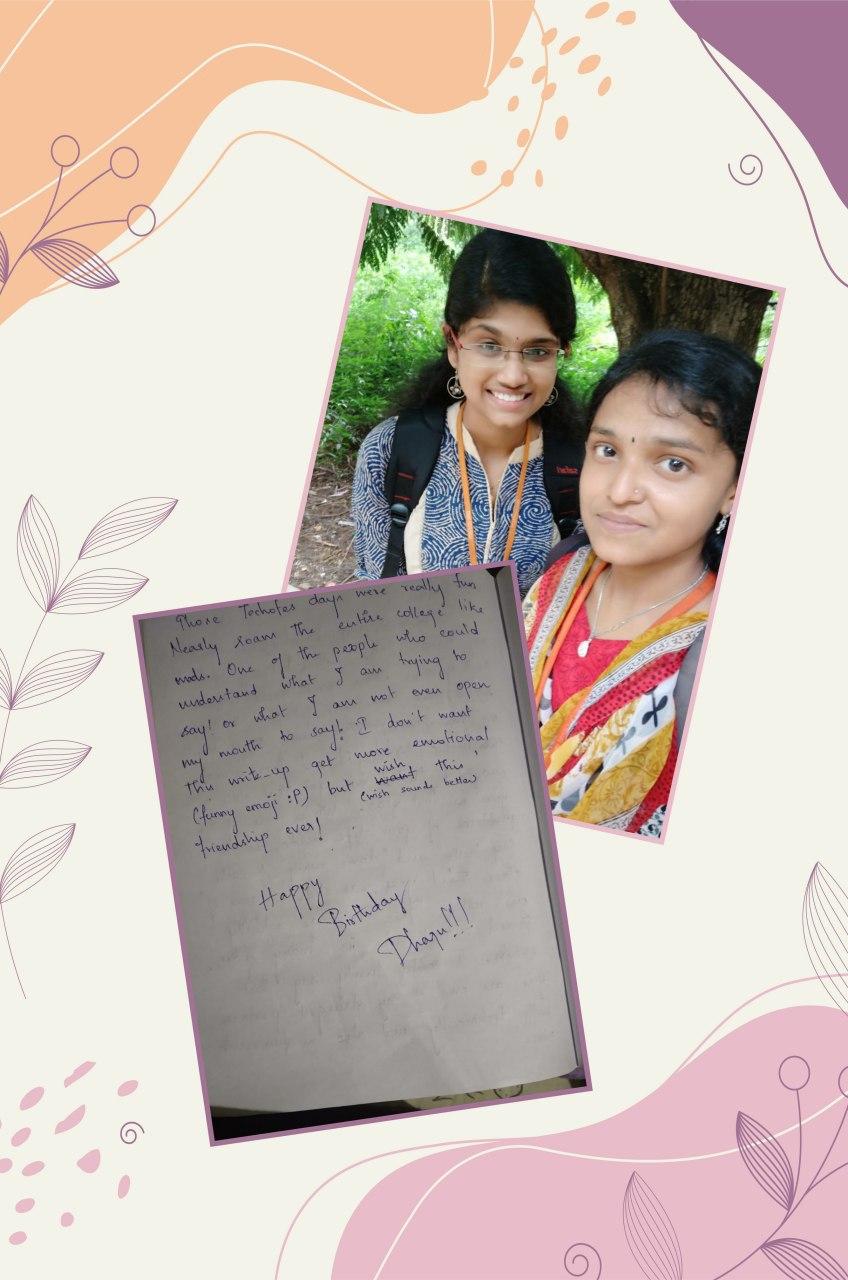 Those Techofes days were really fun
Nearly roam the entire college like
nuds. One of the people who could
understand what I am trying to
say! or what I am not even open
my mouth to say!. I don't want
this write-up get more emotional
(funny emoji :P) but wish want this
(wish sounds better)
friendship ever!
Happy
Birthday
Dhaju!!!